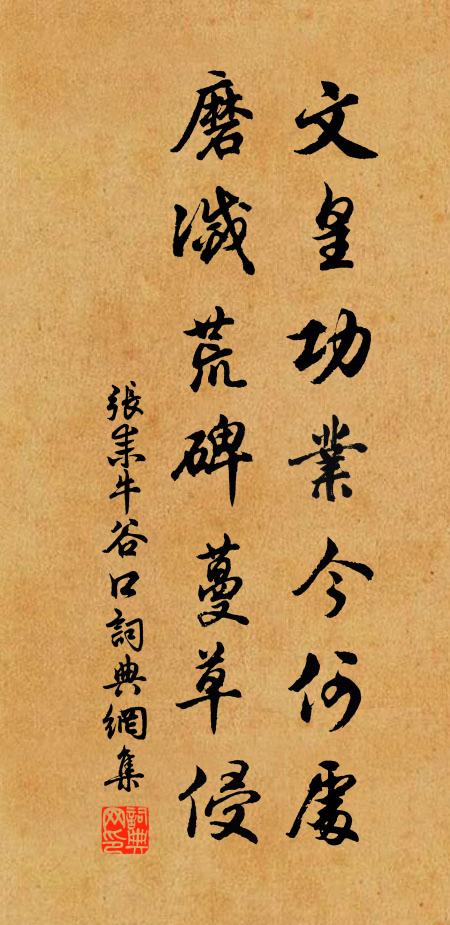 文皇功業今何處
磨滅荒碑蔓草侵
張耒牛谷口詞典網集
詞典網印